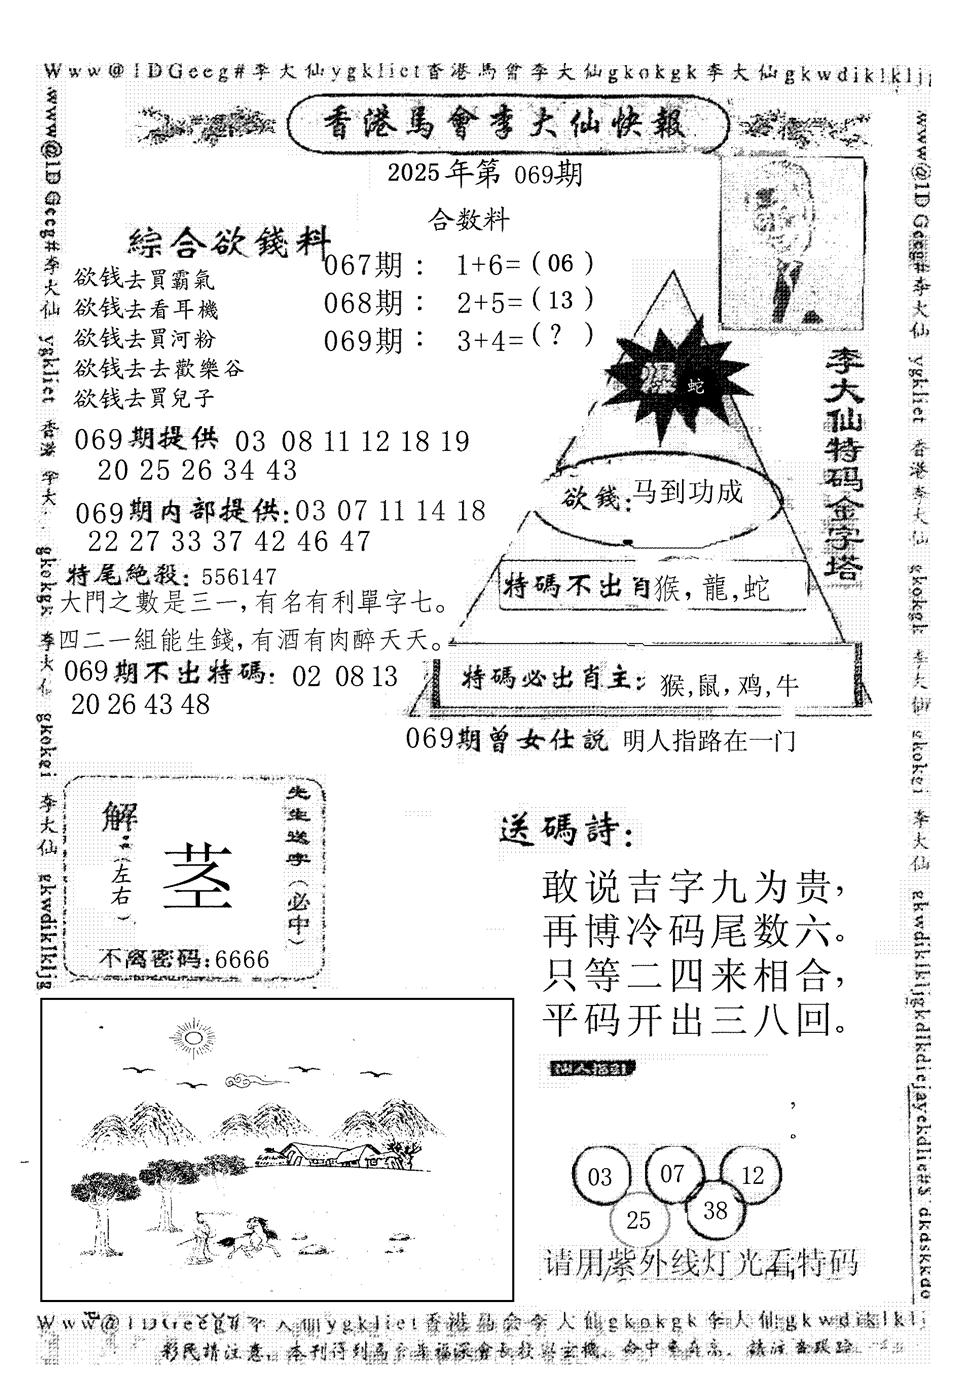 Www@1DGeeg#李大仙ygkliet香港馬會李大仙gkokgk李大仙gkwdiklklj
香港馬會李大仙快報
2025年第 069期
合数料
綜合欲錢料
欲钱去買霸氣
欲钱去看耳機
欲钱去買河粉
欲钱去去歡樂谷
欲钱去買兒子
067期： 1+6=（06 ）
068期： 2+5=（13 ）
069期： 3+4=（？ ）
爆 蛇
李大仙特码金字塔
欲錢:马到功成
特碼不出肖猴，龍,蛇
特碼必出肖主: 猴,鼠，鸡,牛
069期提供 03 08 11 12 18 19
20 25 26 34 43
069期内部提供:03 07 11 14 18
22 27 33 37 42 46 47
特尾絶殺: 556147
大門之數是三一,有名有利單字七。
四二一組能生錢,有酒有肉醉天天。
069期不出特碼: 02 08 13
20 26 43 48
069期曾女仕説 明人指路在一门
解
（左右）
茎
先生送字（必中）
不离密码:6666
送碼詩:
敢说吉字九为贵，
再博冷码尾数六。
只等二四来相合，
平码开出三八回。
仙人指引
，
。
03 07 12
25 38
请用紫外线灯光看特码
Www@1DGeeg#李大仙ygkliet香港馬会李大仙gkokgk李大仙gkwdiklklj